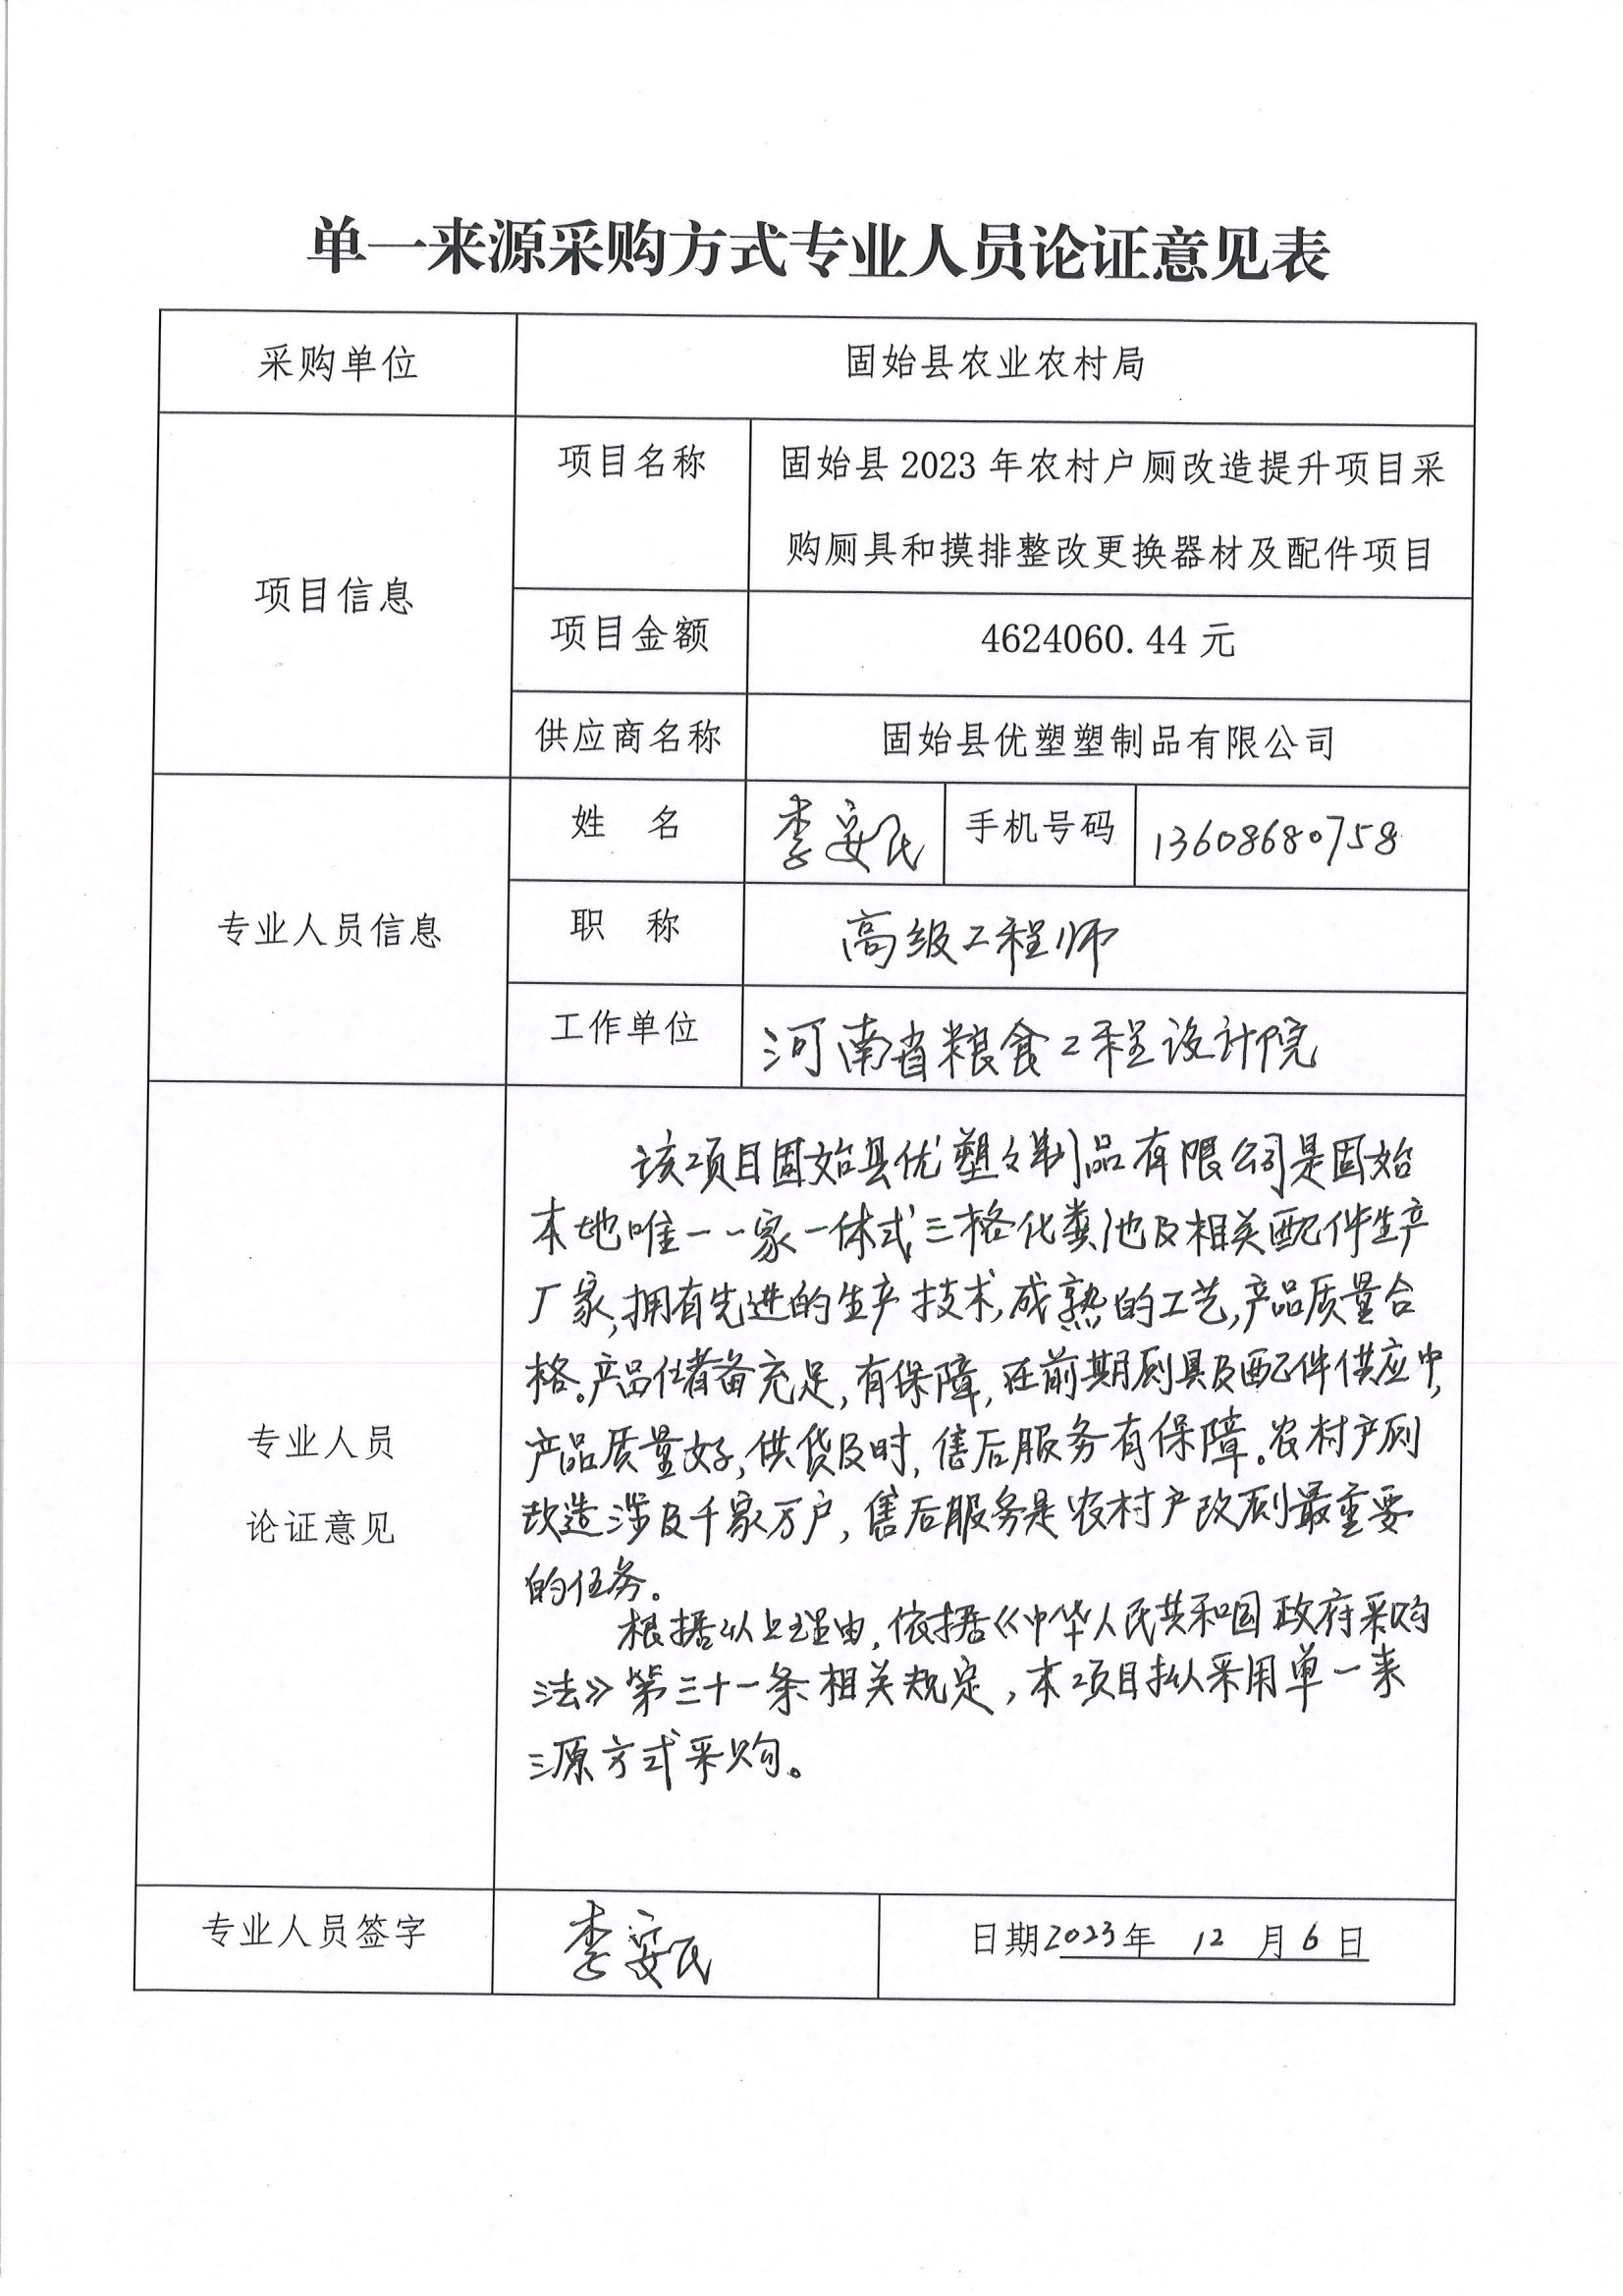 单一来源采购方式专业人员论证意见表
采购单位 固始县农业农村局
项目信息
项目名称 固始县 2023 年农村户厕改造提升项目采
购厕具和摸排整改更换器材及配件项目
项目金额 4624060.44 元
供应商名称 固始县优塑塑制品有限公司
专业人员信息
姓 名 李安民 手机号码 13608680758
职 称 高级工程师
工作单位 河南省粮食工程设计院
专业人员
论证意见
该项目固始县优塑々制品有限公司是固始
本地唯一一家一体式三格化粪池及相关配件生产
厂家,拥有先进的生产技术,成熟的工艺,产品质量合
格。产品储备充足,有保障,在前期厕具及配件供应中,
产品质量好,供货及时,售后服务有保障。农村户厕
改造涉及千家万户,售后服务是农村户改厕最重要
的任务。
根据以上理由,依据《中华人民共和国政府采购
法》第三十一条相关规定,本项目拟采用单一来
源方式采购。
专业人员签字 李安民 日期2023年 12 月 6 日